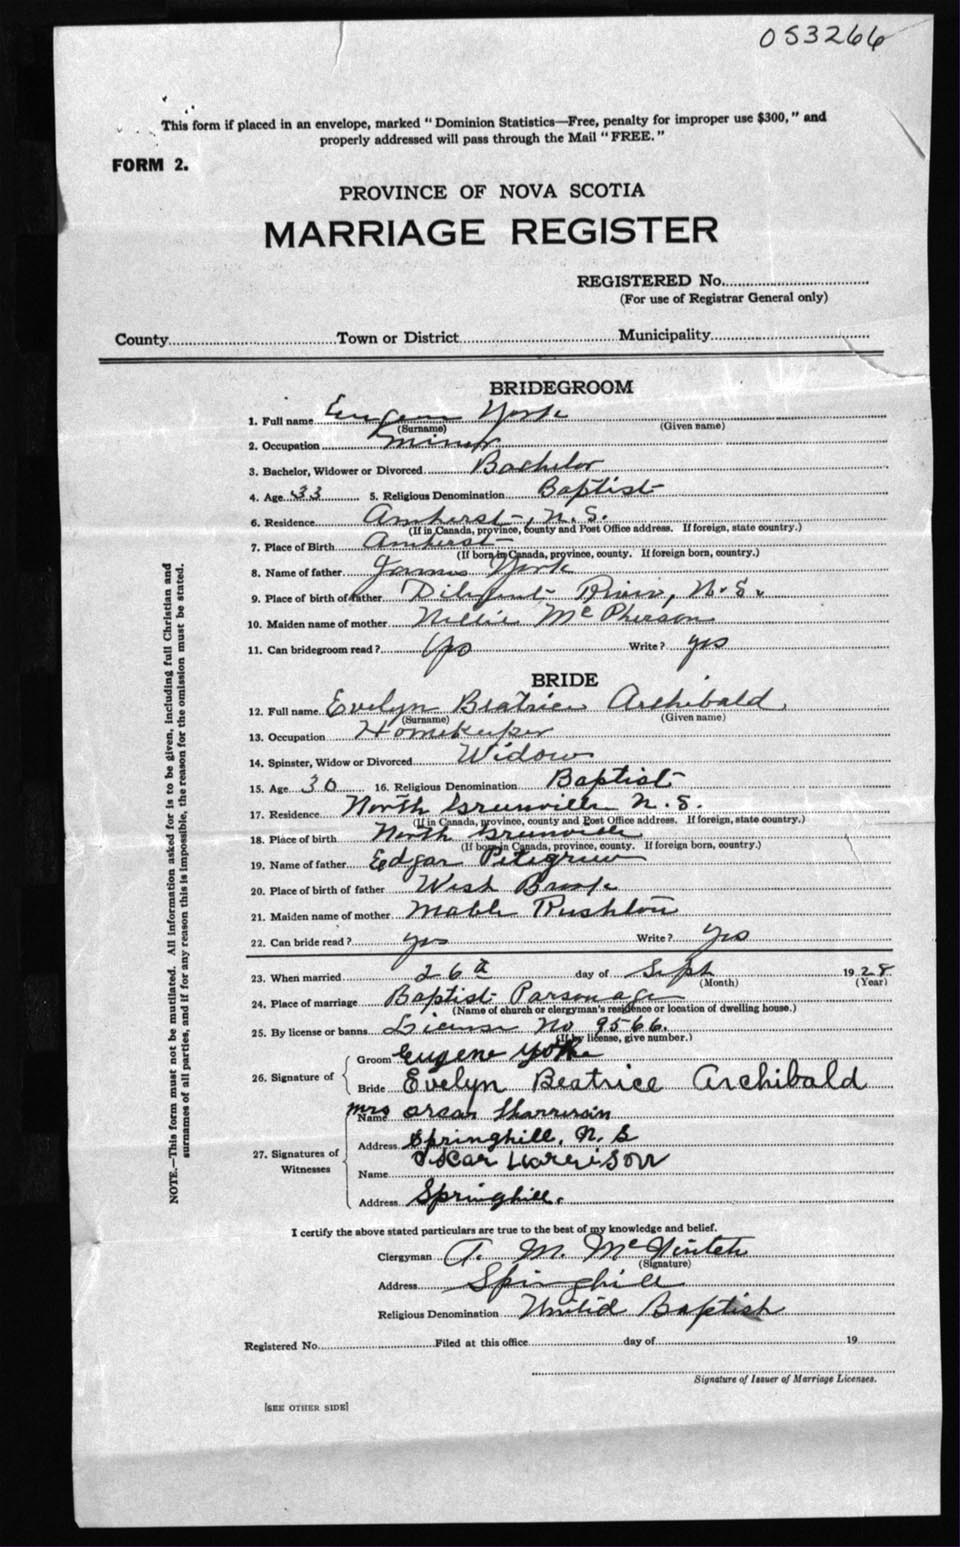 053266
This form if placed in an envelope, marked "Dominion Statistics—Free, penalty for improper use $300," and
properly addressed will pass through the Mail "FREE."
FORM 2.
PROVINCE OF NOVA SCOTIA
MARRIAGE REGISTER
REGISTERED No.
(For use of Registrar General only)
County Town or District Municipality
BRIDEGROOM
1. Full name Eugene York
(Surname) (Given name)
2. Occupation Miner
3. Bachelor, Widower or Divorced Bachelor
4. Age 33 5. Religious Denomination Baptist
6. Residence Amherst, N.S.
(If in Canada, province, county and Post Office address. If foreign, state country.)
7. Place of Birth Amherst
(If born in Canada, province, county. If foreign born, country.)
8. Name of father James York
9. Place of birth of father Diligent River, N.S.
10. Maiden name of mother Nellie McPherson
11. Can bridegroom read? Yes Write? yes
BRIDE
12. Full name Evelyn Beatrice Archibald
(Surname) (Given name)
13. Occupation Homekeeper
14. Spinster, Widow or Divorced Widow
15. Age 30 16. Religious Denomination Baptist
17. Residence North Greenville N.S.
(If in Canada, province, county and Post Office address. If foreign, state country.)
18. Place of birth North Greenville
(If born in Canada, province, county. If foreign born, country.)
19. Name of father Edgar Petigrew
20. Place of birth of father West Brook
21. Maiden name of mother Mable Rushton
22. Can bride read? yes Write? Yes
23. When married 26th day of Sept 1928
(Month) (Year)
24. Place of marriage Baptist Parsonage
(Name of church or clergyman's residence or location of dwelling house.)
25. By license or banns License No 9566.
(If by license, give number.)
26. Signature of Groom Eugene Yorke
Bride Evelyn Beatrice Archibald
27. Signatures of Witnesses Name Mrs Oscar Harrison
Address Springhill, N.S
Name Oscar Harrison
Address Springhill.
I certify the above stated particulars are true to the best of my knowledge and belief.
Clergyman A. M. McNintch
(Signature)
Address Springhill
Religious Denomination United Baptist
Registered No. Filed at this office day of 19
Signature of Issuer of Marriage Licenses.
[SEE OTHER SIDE]
NOTE.—This form must not be mutilated. All information asked for is to be given, including full Christian and
surnames of all parties, and if for any reason this is impossible, the reason for the omission must be stated.